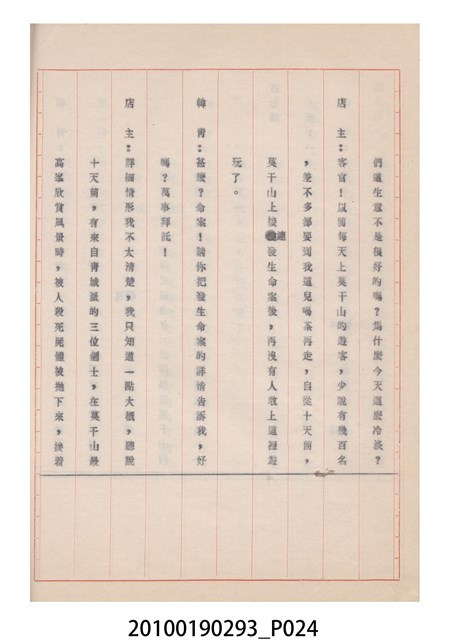 們這生意不是很好的嗎?為什麼今天這麼冷淡?
店 主:客官!以前每天上莫干山的遊客,少說有幾百名
,差不多都要到我這兒喝茶再走,自從十天前,
莫干山上接連發生命案後,再沒有人敢上這裡遊
玩了。
韓 青:甚麼?命案!請你把發生命案的詳情告訴我,好
嗎?萬事拜託!
店 主:詳細情形我不太清楚,我只知道一點大概,聽說
十天前,有來自青城派的三位劍士,在莫干山最
高峯欣賞風景時,被人殺死屍體被拋下來,接着
20100190293_P024